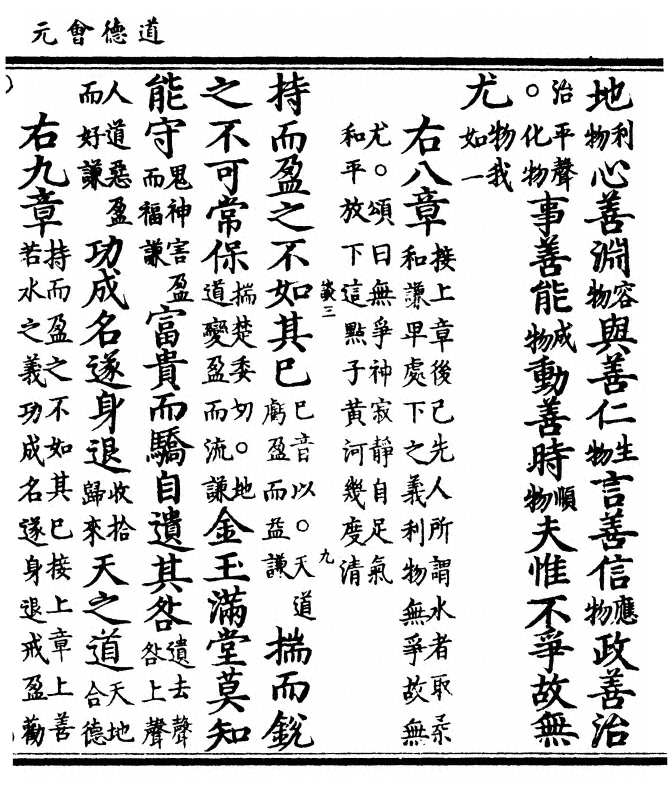 道德會元
地利物心善淵容物與善仁生物言善信應物政善治
治平聲。化物事善能成物動善時順物夫惟不爭故無
尤物我如一
右八章接上章後己先人所謂水者取柔和謙卑處下之義利物無爭故無
尤。頌曰無爭神寂靜自足氣和平放下這點子黃河幾度清
三 九
持而盈之不如其已已音以。天道虧盈而益謙揣而銳
之不可常保揣楚委切。地道變盈而流謙金玉滿堂莫知
能守鬼神害盈而福謙富貴而驕自遺其咎遺去聲咎上聲
人道惡盈而好謙功成名遂身退收拾歸來天之道天地合德
右九章持而盈之不如其已接上章上善若水之義功成名遂身退戒盈勸